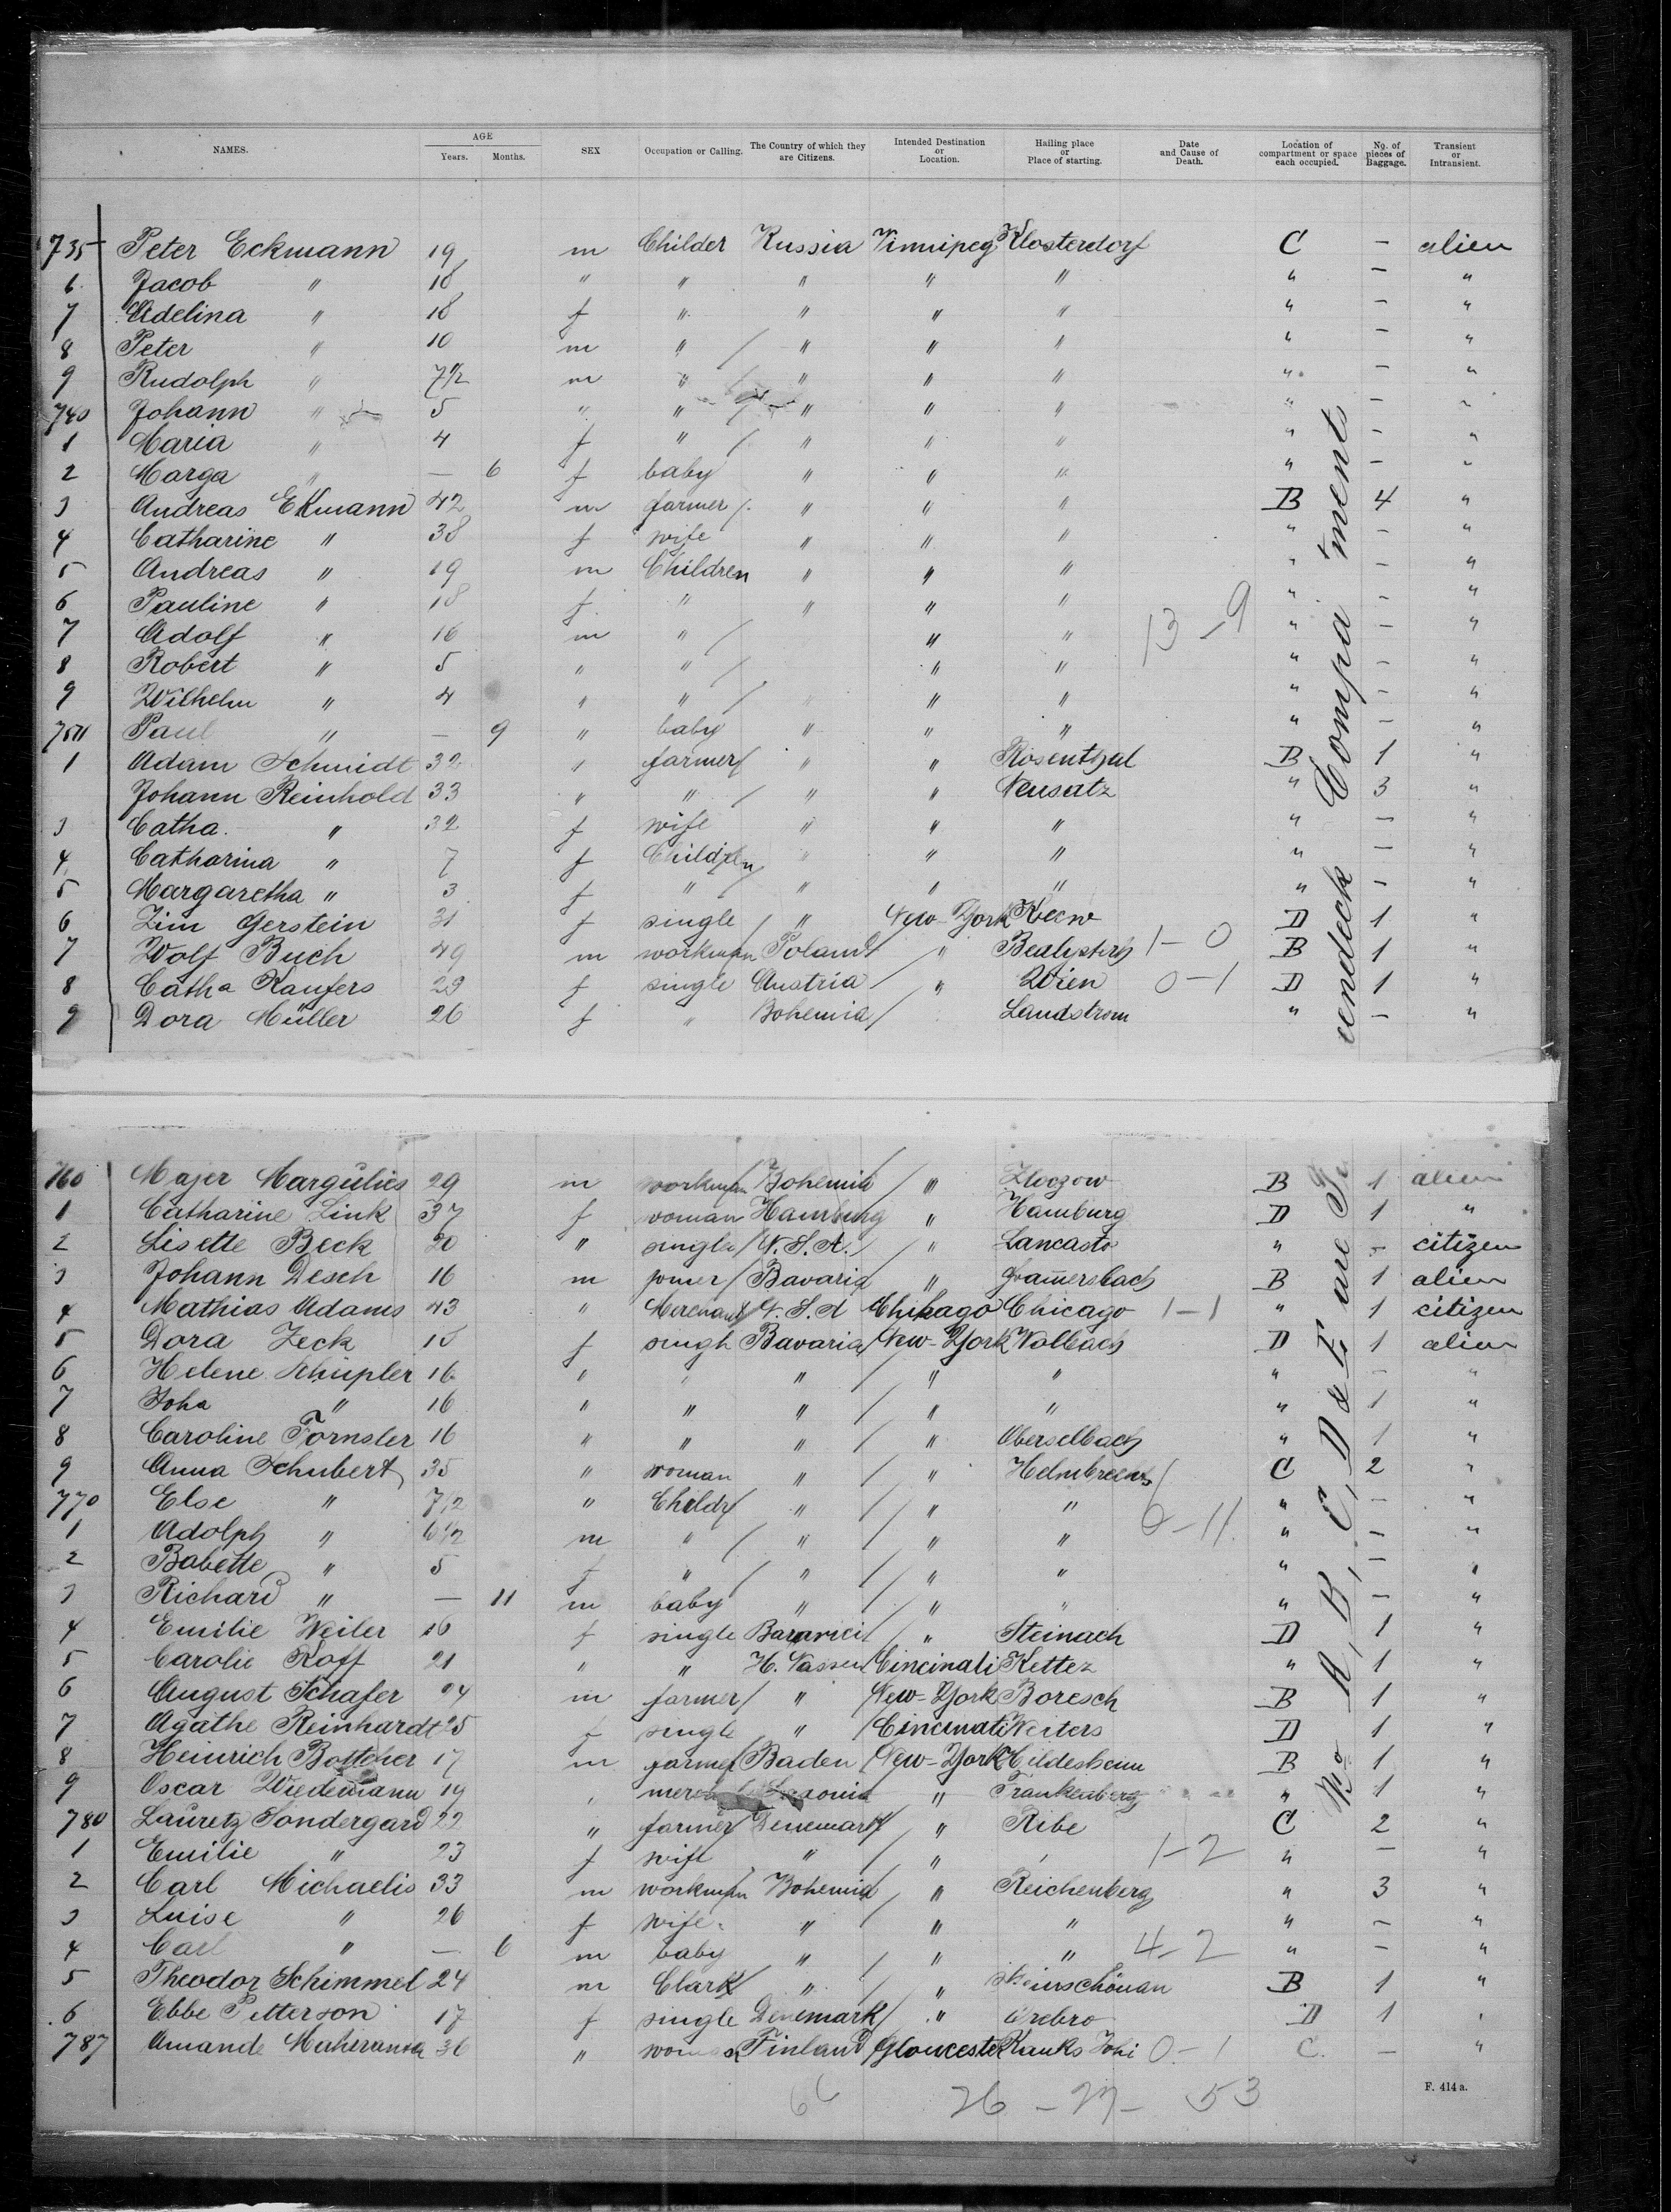 NAMES. AGE Years. Months. SEX Occupation or Calling. The Country of which they are Citizens. Intended Destination or Location. Hailing place or Place of starting. Date and Cause of Death. Location of compartment or space each occupied. No. of pieces of Baggage. Transient or Intransient.
735 Peter Eckmann 19 m Childer Russia Winnipeg Klosterdorf C — alien
6 Jacob " 18 " " " " " " — "
7 Adelina " 18 f " " " " " — "
8 Peter " 10 m " " " " " — "
9 Rudolph " 7 1/2 m " " " " " — "
740 Johann " 5 " " " " " " — "
1 Maria " 4 f " " " " " — "
2 Marga " — 6 f baby " " " " — "
3 Andreas Ekmann 42 m farmer " " " B 4 "
4 Catharine " 38 f wife " " " " — "
5 Andreas " 19 m Children " " " " — "
6 Pauline " 18 f " " " " " — "
7 Adolf " 16 m " " " 13-9 " — "
8 Robert " 5 " " " " " — "
9 Wilhelm " 4 " " " " " " — "
Paul " — 9 " baby " " " " — "
1 Adam Schmidt 32 " farmer " " Rosenthal B 1 "
Johann Reinhold 33 " " " " Neusatz " 3 "
3 Catha. " 32 f wife " " " " — "
4 Catharina " 7 f Children " " " " — "
5 Margaretha " 3 f " " " " " — "
6 Zim Gerstein 31 f single " New-York D 1 "
7 Wolf Buch 49 m workman Poland " 1-0 B 1 "
8 Catha Kaufers 29 f single Austria " Wien 0-1 D 1 "
9 Dora Müller 26 f " Bohemia Landstrom " — "
760 Majer Margulies 29 m workman Bohemia " Zloczow B 1 alien
1 Catharine Link 37 f woman Hamburg " Hamburg D 1 "
2 Lisette Beck 20 " single U.S.A. " Lancasto " — citizen
3 Johann Desch 16 m Bavaria " B 1 alien
4 Mathias Adams 43 " U.S.A Chikago Chicago 1-1 " 1 citizen
5 Dora Zeck 18 f singh Bavaria New-York Walbach D 1 alien
6 Helene Schipler 16 " " " " " " — "
7 Joha " 16 " " " " " " 1 "
8 Caroline Fornsler 16 " " " " Oberselbach " 1 "
9 Anna Schubert 35 " woman " " Helmbrechts C 2 "
770 Else " 7 1/2 " Childr " " " " — "
1 Adolph " 6 1/2 m " " " " 0-11 " — "
2 Babette " 5 f " " " " " — "
3 Richard " — 11 m baby " " " " — "
4 Emilie Weiler 16 f single " Steinach D 1 "
5 Carolie Roff 21 " " H. Nassen Cincinati Kettez " 1 "
6 August Schafer 24 m farmer " New-York Boresch B 1 "
7 Agathe Reinhardt 25 f single " Cincinati Weiters D 1 "
8 Heinrich Bottcher 17 m farmer Baden New-York Hildesheim B 1 "
9 Oscar Wiedemann 19 " " Frankenberg " 1 "
780 Lauretz Sondergard 22 " farmer Denemark " Ribe C 2 "
1 Emilie " 23 f wife " " " 1-2 " — "
2 Carl Michaelis 33 m workman Bohemia " Reichenberg " 3 "
3 Luise " 26 f wife " " " " — "
4 Carl " — 6 m baby " " " 4-2 " — "
5 Theodor Schimmel 24 m Clark " " B 1 "
6 Ebbe Petterson 17 f single Denemark " Orebro D 1 "
787 Amande Maheranna 36 " woman Finland Gloucester Kauks Johi 0-1 C. — "
No A, B, C, D & E are in Compa'ments
66 26 - 27 - 53
F. 414 a.